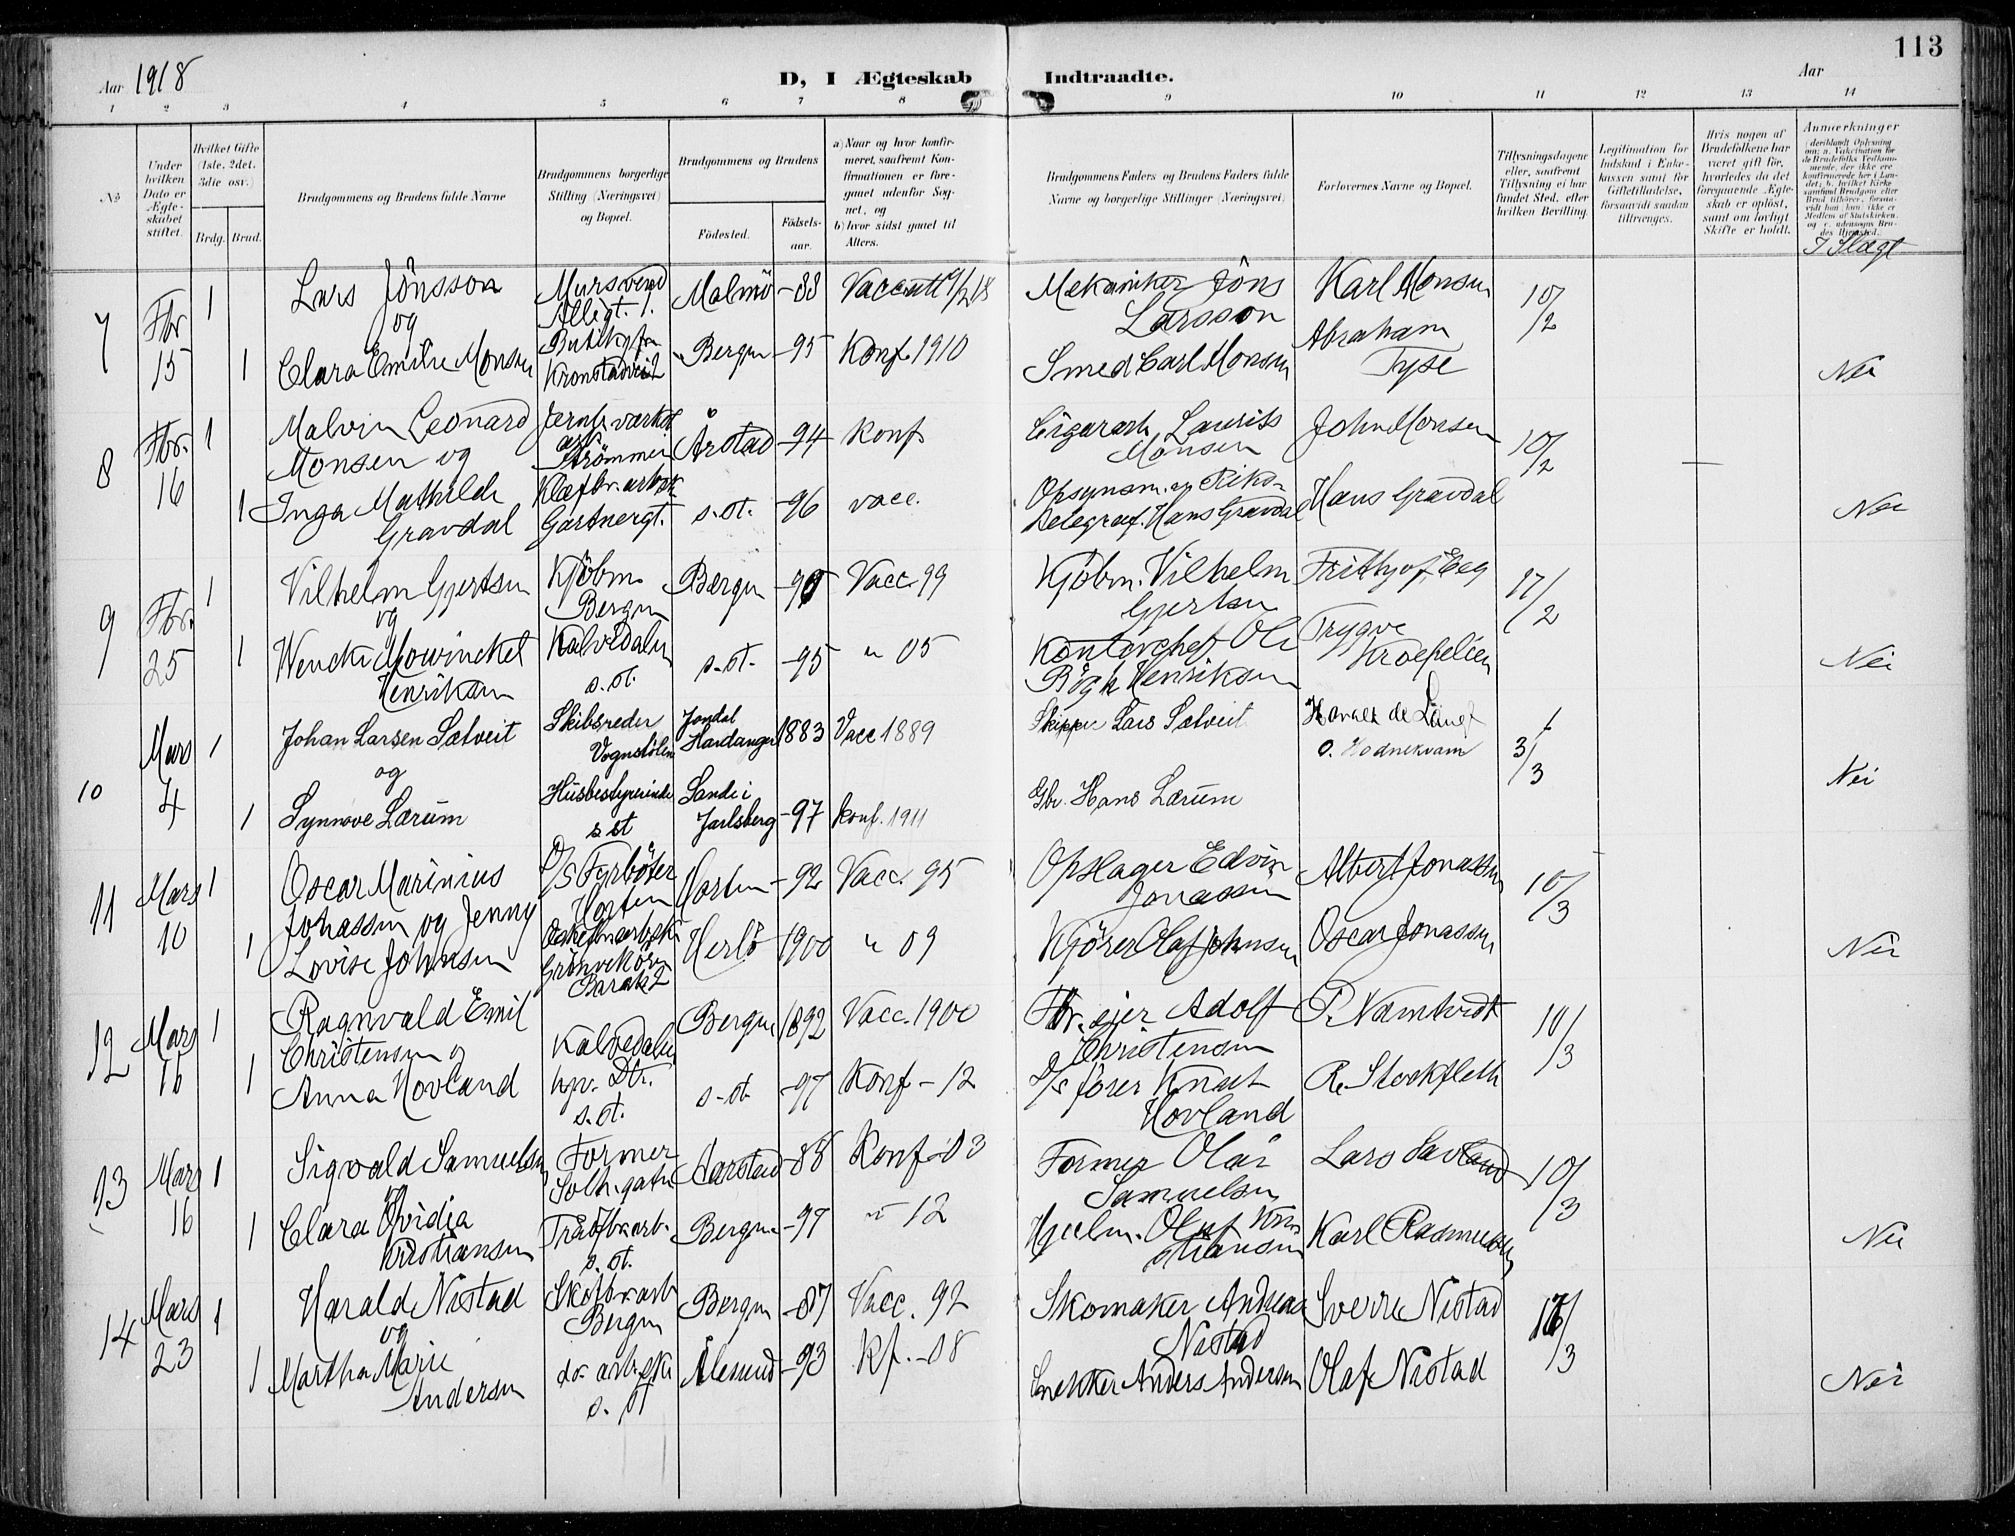 113
Aar 1918
D, I Ægteskab Indtraadte.
Aar
1 2 3 4 5 6 7 8 9 10 11 12 13 14
No
Under hvilken Dato er Ægteskabet stiftet.
Hvilket Gifte (1ste, 2det, 3die osv.)
Brdg. Brud.
Brudgommens og Brudens fulde Navne
Brudgommens borgerlige Stilling (Næringsvei) og Bopæl.
Brudgommens og Brudens
Fødested.
Fødselsaar.
a) Naar og hvor konfirmeret, saafremt Konfirmationen er foregaaet udenfor Sognet, og
b) hvor sidst gaaet til Alters.
Brudgommens Faders og Brudens Faders fulde Navne og borgerlige Stillinger (Næringsvei).
Forlovernes Navne og Bopæl.
Tillysningsdagene eller, saafremt Tillysning ei har fundet Sted, efter hvilken Bevilling.
Legitimation for Indskud i Enkekassen samt for Giftetilladelse, forsaavidt saadan tiltrænges.
Hvis nogen af Brudefolkene har været gift før, hvorledes da det foregaaende Ægteskab er opløst, samt om lovligt Skifte er holdt.
Anmærkninger
I Slægt
7 Fbr 15 1 Lars Jönsson Mursvend Malmö -88 Vacc att 9/2 18 Mekaniker Jöns Larsson Karl Monsen 10/2
og
1 Clara Emilie Monsen Kronstadvei 2 Bergen -95 Konf. 1910 Smed Carl Monsen Abraham Tyse Nei
8 Fbr. 16 1 Malvin Leonard Monsen og Årstad -94 Konf Cigararb. Laurits Monsen John Monsen 10/2
1 Inga Mathilde Gravdal Gartnergt. s. st. -96 vacc. Opsynsm. Hans Gravdal Hans Gravdal Nei
9 Fbr. 25 1 Vilhelm Gjertsen Kjöbm. Bergen Bergen -90 Vacc. 99 Kjöbm. Vilhelm Gjertsen Frithjof Eeg 17/2
og
1 Wencke Mowinckel Henriksen Kalvedalen s. st. s. st. -95 " 05 Kontorchef Ole Bögh Henriksen Trygve Kroepelien Nei
10 Mars 4 1 Johan Larsen Sælveit Skibsreder Vognstölen Jondal Hardanger 1883 Vacc 1889 Skipper Lars Sælveit 3/3
og
1 Synnøve Lærum Husbestyrerinde s st Sande i Jarlsberg -97 Konf. 1911 Gbr. Hans Lærum Nei
11 Mars 10 1 Oscar Marinius Jonassen og D/S Fyrböter Horten Horten -92 Vacc. 95 Opslager Edvin Jonassen Albert Jonassen 10/3
1 Jenny Lovise Johnsen Barak 2 Herlö 1900 " 09 Kjörer Olaf Johnsen Oscar Jonassen Nei
12 Mars 16 1 Ragnvald Emil Christensen og Kalvedalen Bergen 1892 Vacc. 1900 Adolf Christensen P. Namtvedt 10/3
1 Anna Hovland hjv. Dtr. s. st. s. st. -97 Konf - 12 D/s förer Knut Hovland R. Stockfleth
13 Mars 16 1 Sigvald Samuelsen Former Solh.gaten Aarstad -88 Konf -03 Former Olai Samuelsen Lars 10/3
og
1 Clara Ovidia Kristiansen s. st. Bergen -97 " 12 Olaf Kristiansen Karl Rasmussen Nei
14 Mars 23 1 Harald Nistad Skofbr.arb Bergen Bergen -87 Vacc. 92 Skomaker Andreas Nistad Sverre Nistad 17/3
og
1 Martha Marie Andersen do. arb.ske s. st Ålesund -93 Kf. -08 Snekker Anders Andersen Olaf Nistad Nei